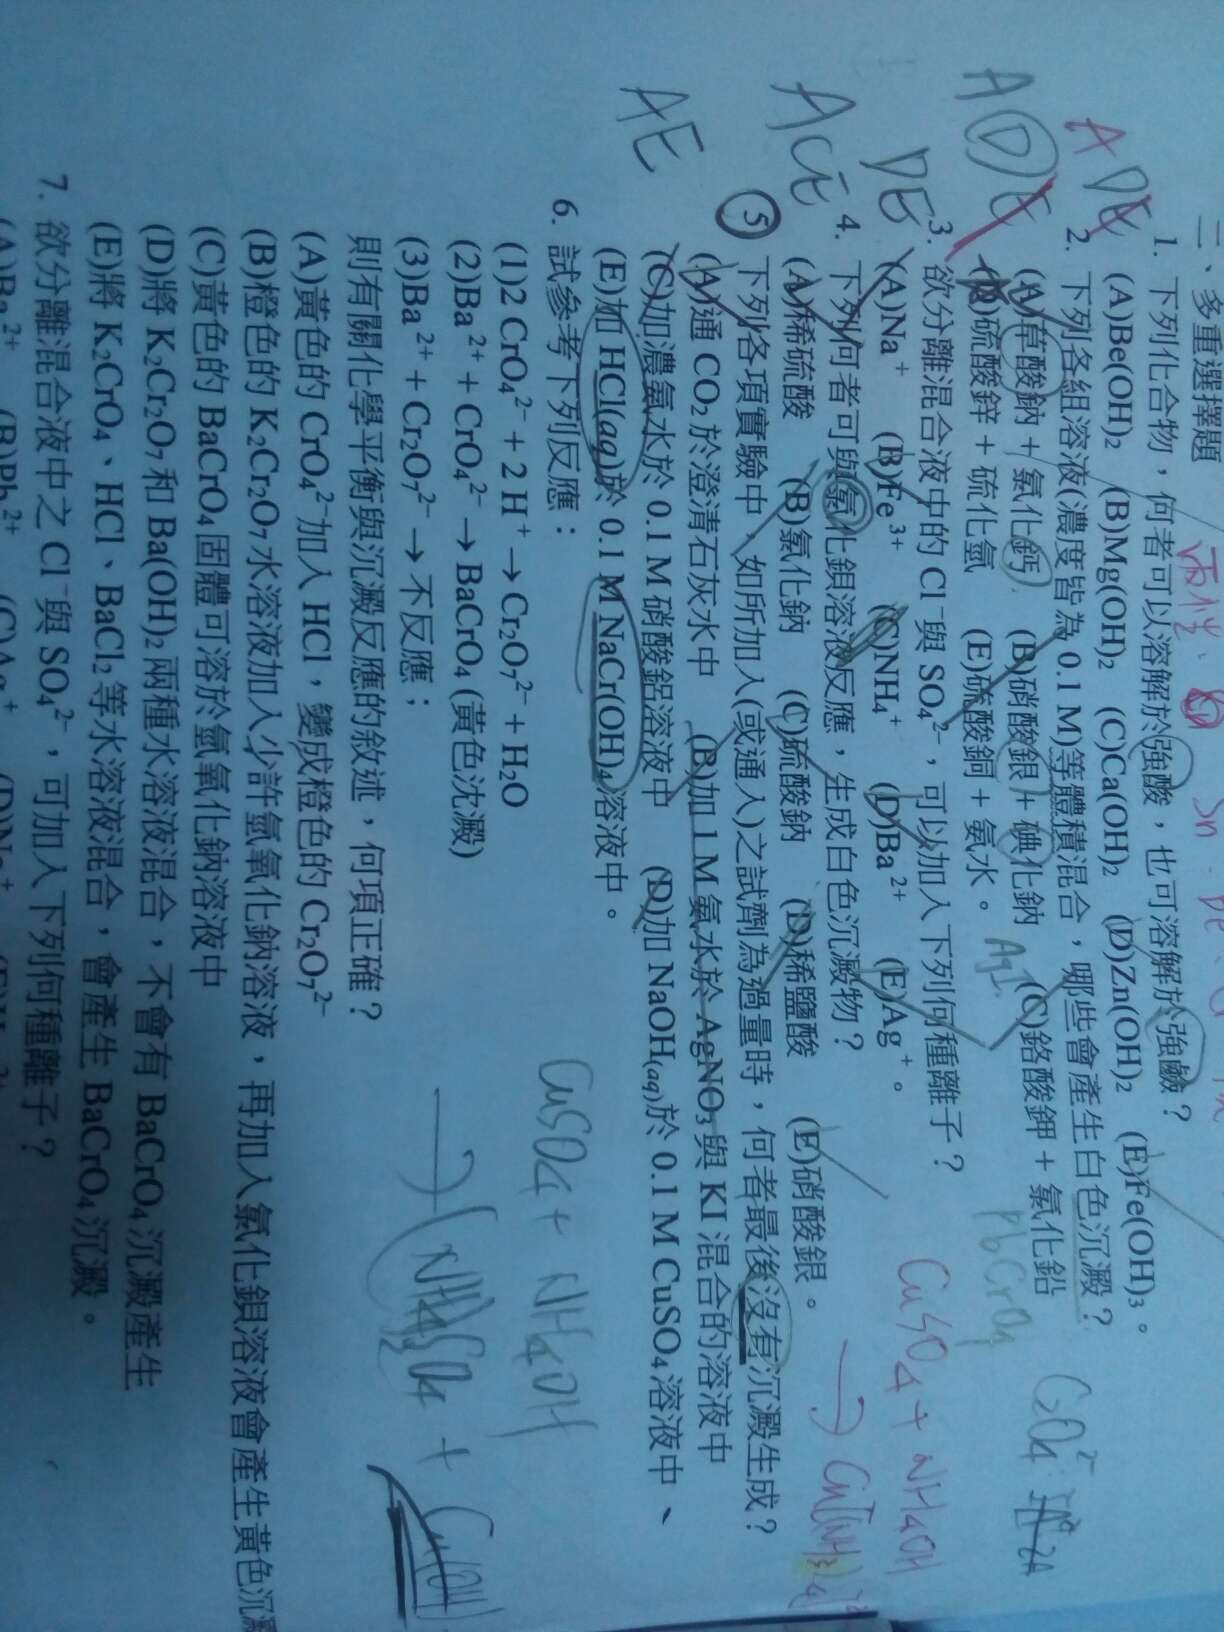 二、多重選擇題
1. 下列化合物，何者可以溶解於強酸，也可溶解於強鹼？
(A)Be(OH)₂ (B)Mg(OH)₂ (C)Ca(OH)₂ (D)Zn(OH)₂ (E)Fe(OH)₃。
2. 下列各組溶液(濃度皆為 0.1 M)等體積混合，哪些會產生白色沉澱？
(A)草酸鈉 + 氯化鈣 (B)硝酸銀 + 碘化鈉 (C)鉻酸鉀 + 氯化鉛
(D)硫酸鋅 + 硫化氫 (E)硫酸銅 + 氨水。
3. 欲分離混合液中的 Cl⁻與 SO₄²⁻，可以加入下列何種離子？
(A)Na⁺ (B)Fe³⁺ (C)NH₄⁺ (D)Ba²⁺ (E)Ag⁺。
4. 下列何者可與氯化鋇溶液反應，生成白色沉澱物？
(A)稀硫酸 (B)氯化鈉 (C)硫酸鈉 (D)稀鹽酸 (E)硝酸銀。
5 下列各項實驗中，如所加入(或通入)之試劑為過量時，何者最後沒有沉澱生成？
(A)通 CO₂ 於澄清石灰水中 (B)加 1 M 氨水於 AgNO₃ 與 KI 混合的溶液中
(C)加濃氨水於 0.1 M 硝酸鋁溶液中 (D)加 NaOH(aq)於 0.1 M CuSO₄ 溶液中、
(E)加 HCl(aq)於 0.1 M NaCr(OH)₄ 溶液中。
6. 試參考下列反應：
(1)2 CrO₄²⁻ + 2 H⁺ → Cr₂O₇²⁻ + H₂O
(2)Ba²⁺ + CrO₄²⁻ → BaCrO₄ (黃色沈澱)
(3)Ba²⁺ + Cr₂O₇²⁻ → 不反應；
則有關化學平衡與沉澱反應的敘述，何項正確？
(A)黃色的 CrO₄²⁻加入 HCl，變成橙色的 Cr₂O₇²⁻
(B)橙色的 K₂Cr₂O₇ 水溶液加入少許氫氧化鈉溶液，再加入氯化鋇溶液會產生黃色沉澱
(C)黃色的 BaCrO₄ 固體可溶於氫氧化鈉溶液中
(D)將 K₂Cr₂O₇ 和 Ba(OH)₂ 兩種水溶液混合，不會有 BaCrO₄ 沉澱產生
(E)將 K₂CrO₄、HCl、BaCl₂ 等水溶液混合，會產生 BaCrO₄ 沉澱。
7. 欲分離混合液中之 Cl⁻與 SO₄²⁻，可加入下列何種離子？
(A)Ba²⁺ (B)Pb²⁺ (C)Ag⁺
兩性
Sn
A D E
A D E
D E
A C E
A E
AgI
PbCrO₄
C₂O₄²⁻
CuSO₄ + NH₄OH
→ Cu(NH₃)₄
CuSO₄ + NH₄OH
→ (NH₄)₂SO₄ + Cu(OH)